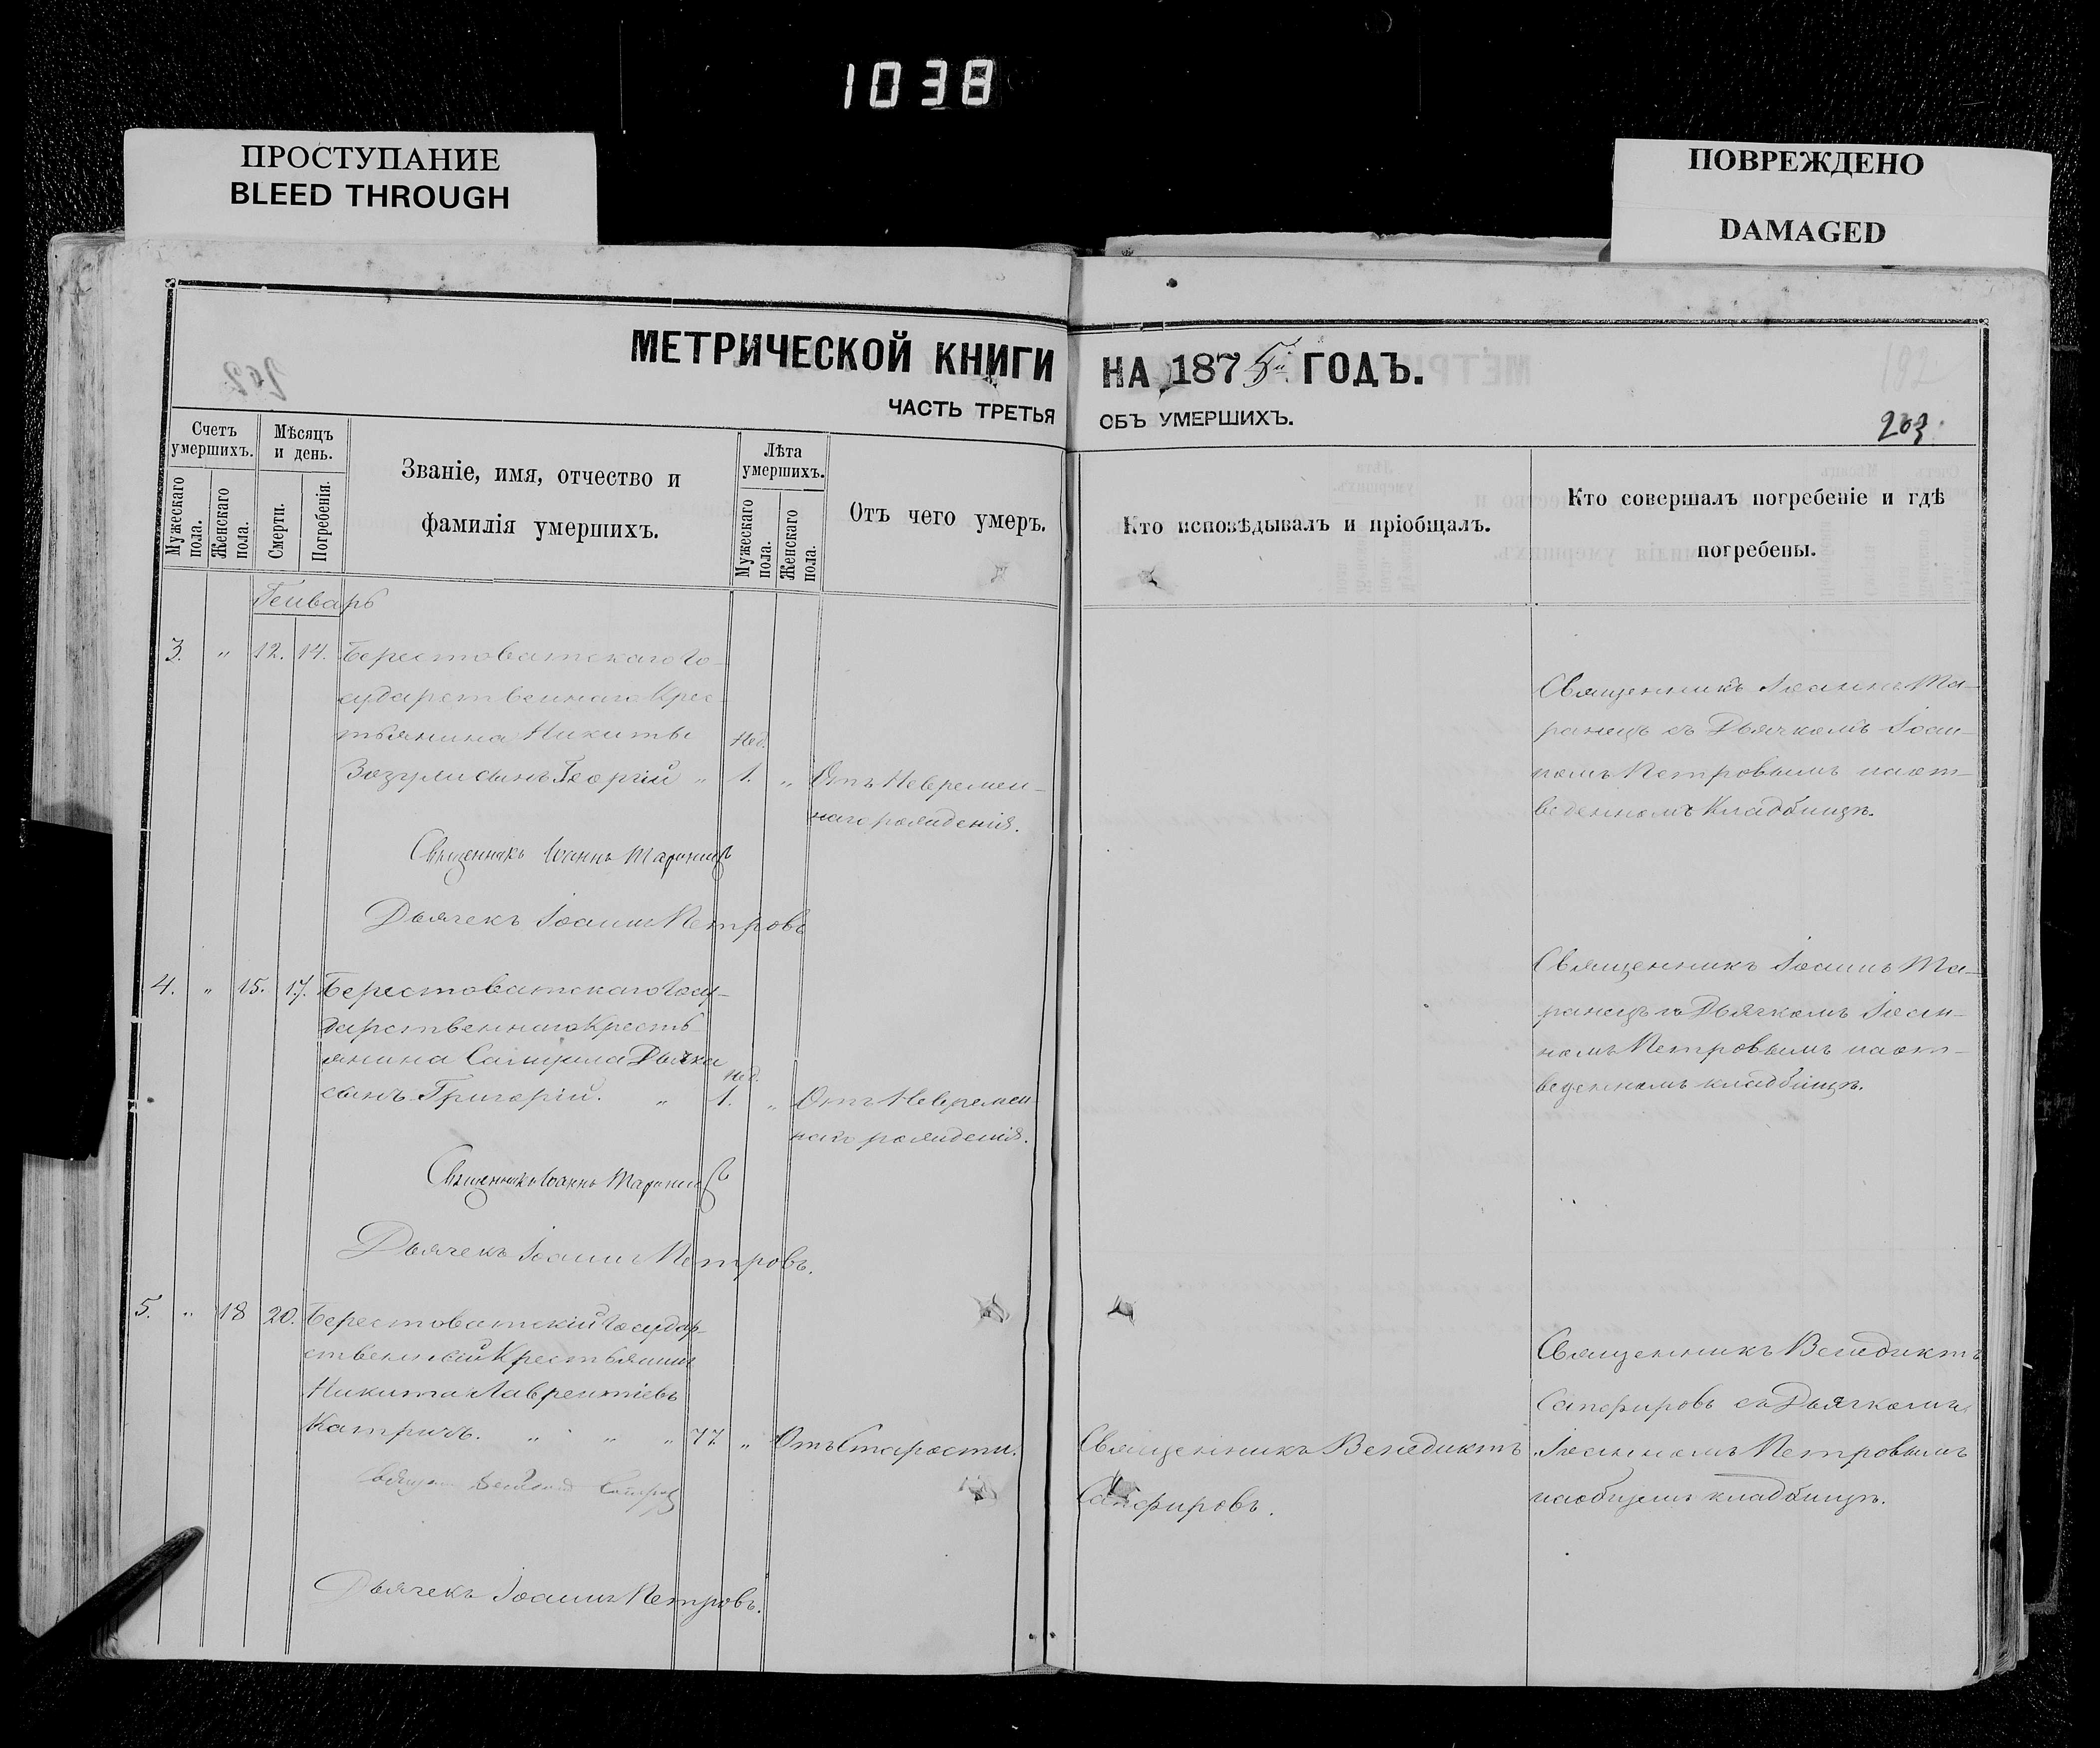 1038
ПРОСТУПАНИЕ
BLEED THROUGH
ПОВРЕЖДЕНО
DAMAGED
МЕТРИЧЕСКОЙ КНИГИ
ЧАСТЬ ТРЕТЬЯ
НА 1875 ГОДЪ.
ОБЪ УМЕРШИХЪ.
203.
Счетъ умершихъ.
Мужескаго пола.
Женскаго пола.
Мѣсяцъ и день.
Смерти.
Погребенія.
Званіе, имя, отчество и
фамилія умершихъ.
Лѣта умершихъ.
Мужескаго пола.
Женскаго пола.
Отъ чего умеръ.
Кто исповѣдывалъ и пріобщалъ.
Кто совершалъ погребеніе и гдѣ
погребены.
Генварь
3. " 12. 14. Берестоватскаго Го-
сударственнаго Крес-
тьянина Никиты Нед.
Зозули сынъ Георгій " 1. " Отъ Невремен-
наго рожденія.
Священникъ Іоаннъ Ма-
ранецъ съ Дьячкомъ Іоан-
номъ Петровымъ на от-
веденномъ Кладбищѣ.
Священникъ Іоаннъ Маранецъ
Дьячекъ Іоаннъ Петровъ
4. " 15. 17. Берестоватскаго Госу-
дарственнаго Кресть-
янина Самуила Дьячка Нед.
сынъ Григорій. " 1. " Отъ Невремен-
наго рожденія.
Священникъ Іоаннъ Ма-
ранецъ съ Дьячкомъ Іоан-
номъ Петровымъ на от-
веденномъ кладбищѣ.
Священникъ Іоаннъ Маранецъ
Дьячекъ Іоаннъ Петровъ.
5. " 18 20. Берестоватскій Государ-
ственный Крестьянинъ
Никита Лаврентіевъ
Катричъ. " " " 77. " Отъ Старости.
Священникъ Венедиктъ
Сапфировъ.
Священникъ Венедиктъ
Сапфировъ съ Дьячкомъ
Іоанномъ Петровымъ
на общемъ кладбищѣ.
Дьячекъ Іоаннъ Петровъ.